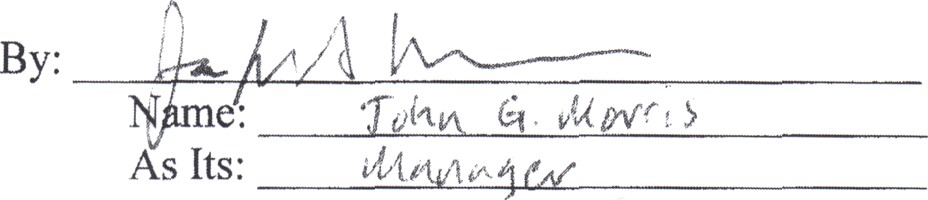 By:
Name: John G. Morris
As Its: Manager